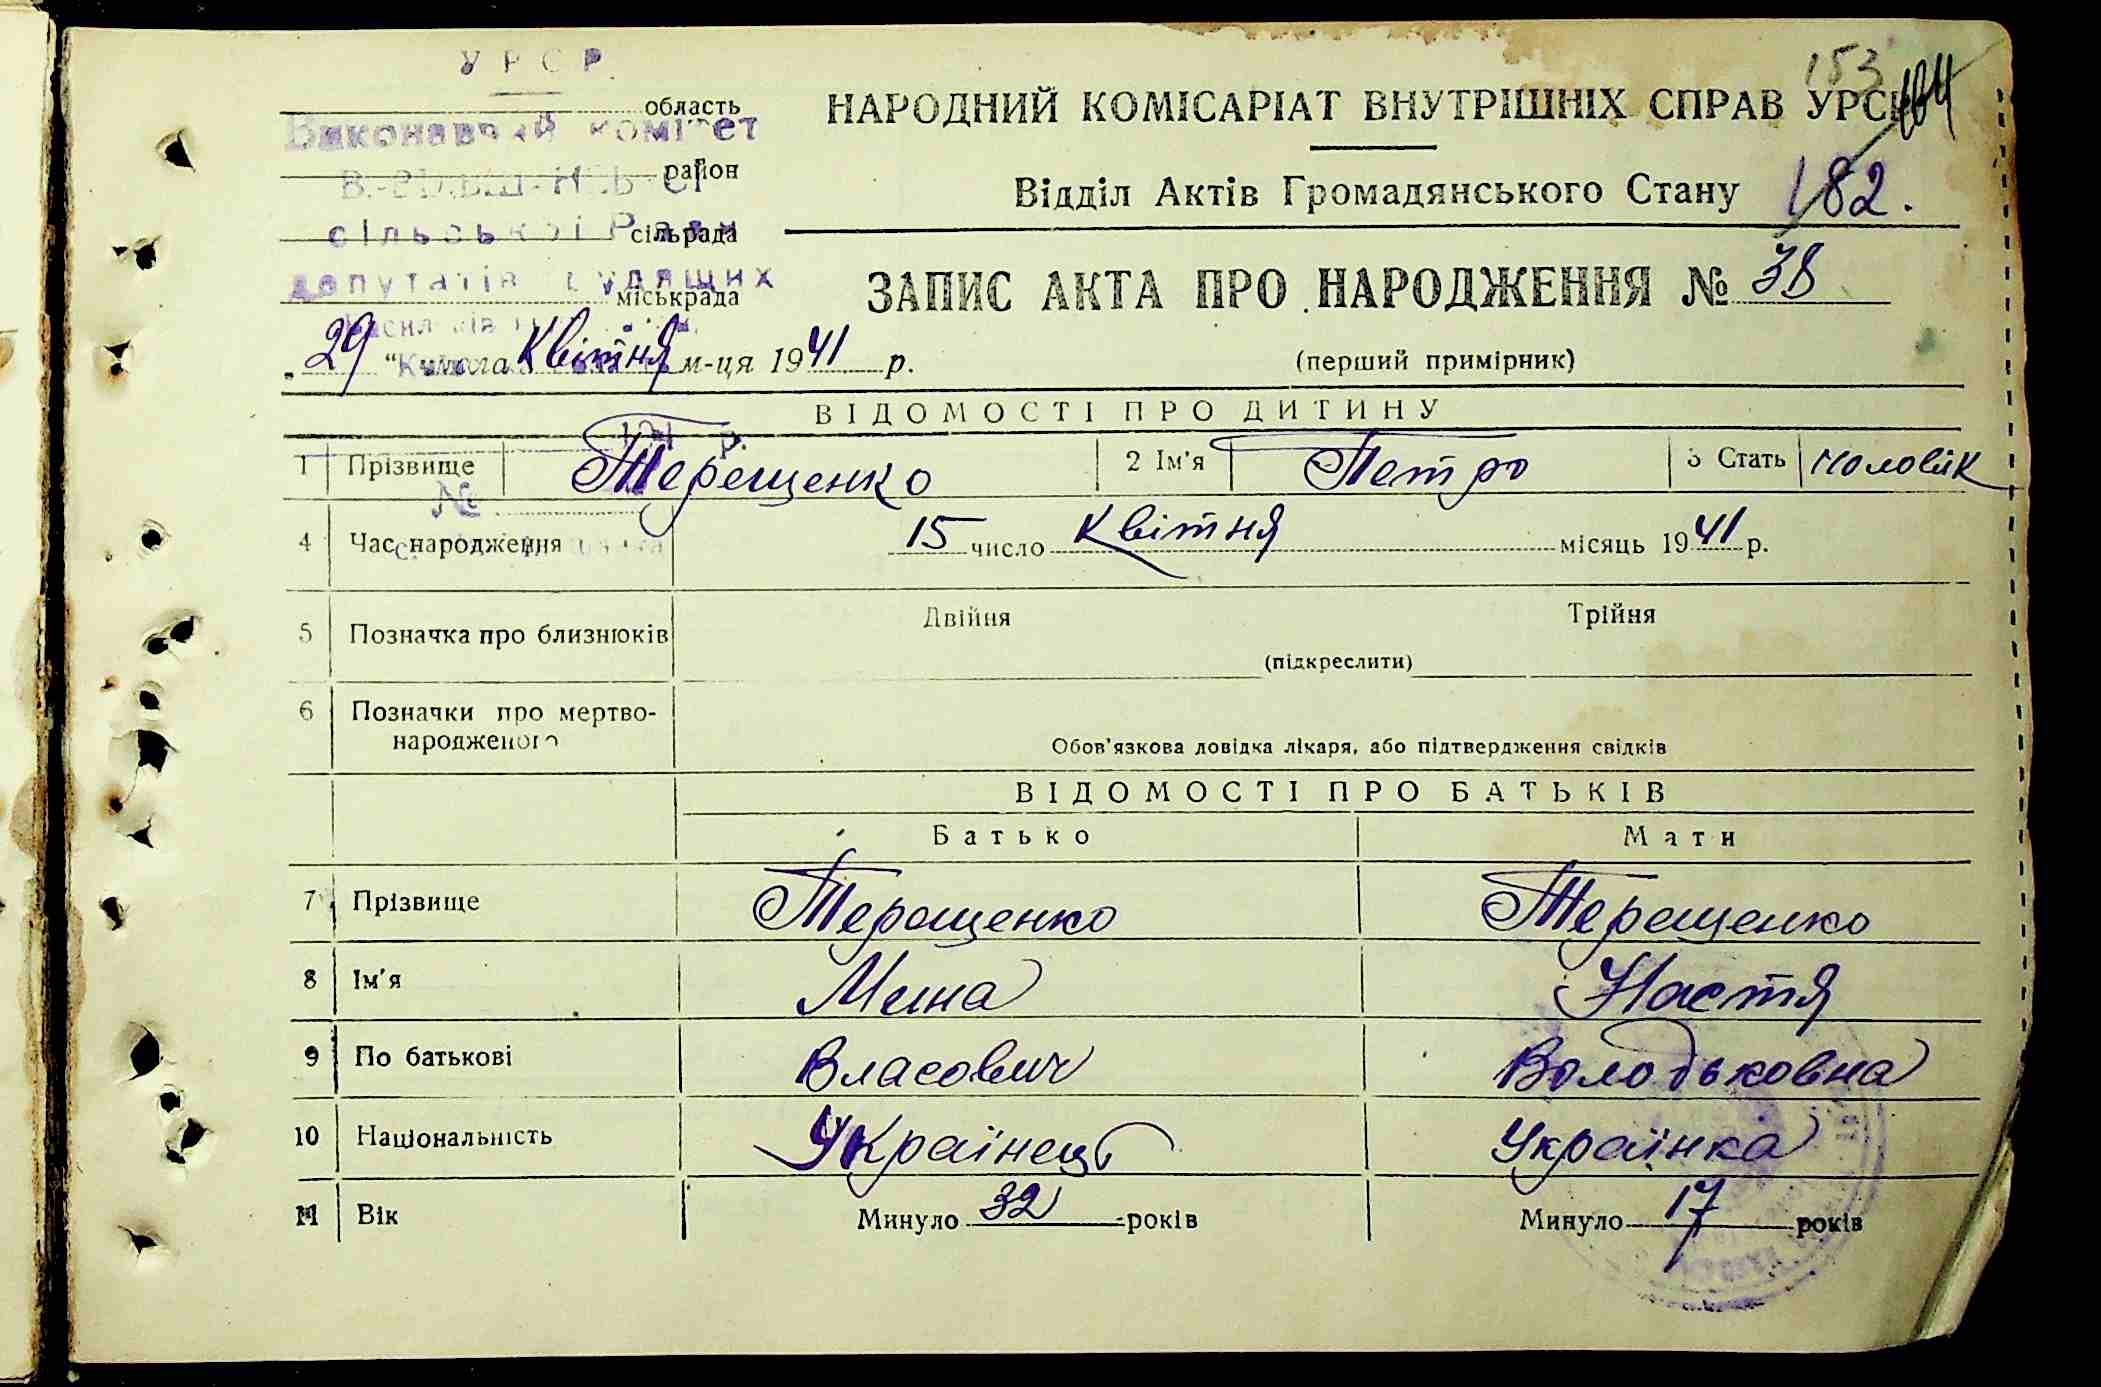 УРСР
область
Виконавчий комітет
район
сільської Ради
сільрада
депутатів трудящих
міськрада
153
НАРОДНИЙ КОМІСАРІАТ ВНУТРІШНІХ СПРАВ УРСР
Відділ Актів Громадянського Стану 182.
ЗАПИС АКТА ПРО НАРОДЖЕННЯ № 38
(перший примірник)
„29 “ числа Квітня м-ця 1941 р.
ВІДОМОСТІ ПРО ДИТИНУ
1 Прізвище Терещенко 2 Ім'я Петро 3 Стать чоловік
№
4 Час народження 15 число Квітня місяць 1941 р.
5 Позначка про близнюків Двійня Трійня
(підкреслити)
6 Позначки про мертво-
народженого
Обов'язкова довідка лікаря, або підтвердження свідків
ВІДОМОСТІ ПРО БАТЬКІВ
Батько Мати
7 Прізвище Терещенко Терещенко
8 Ім'я Мина Настя
9 По батькові Власович Володьковна
10 Національність Українець Українка
11 Вік Минуло 32 років Минуло 17 років